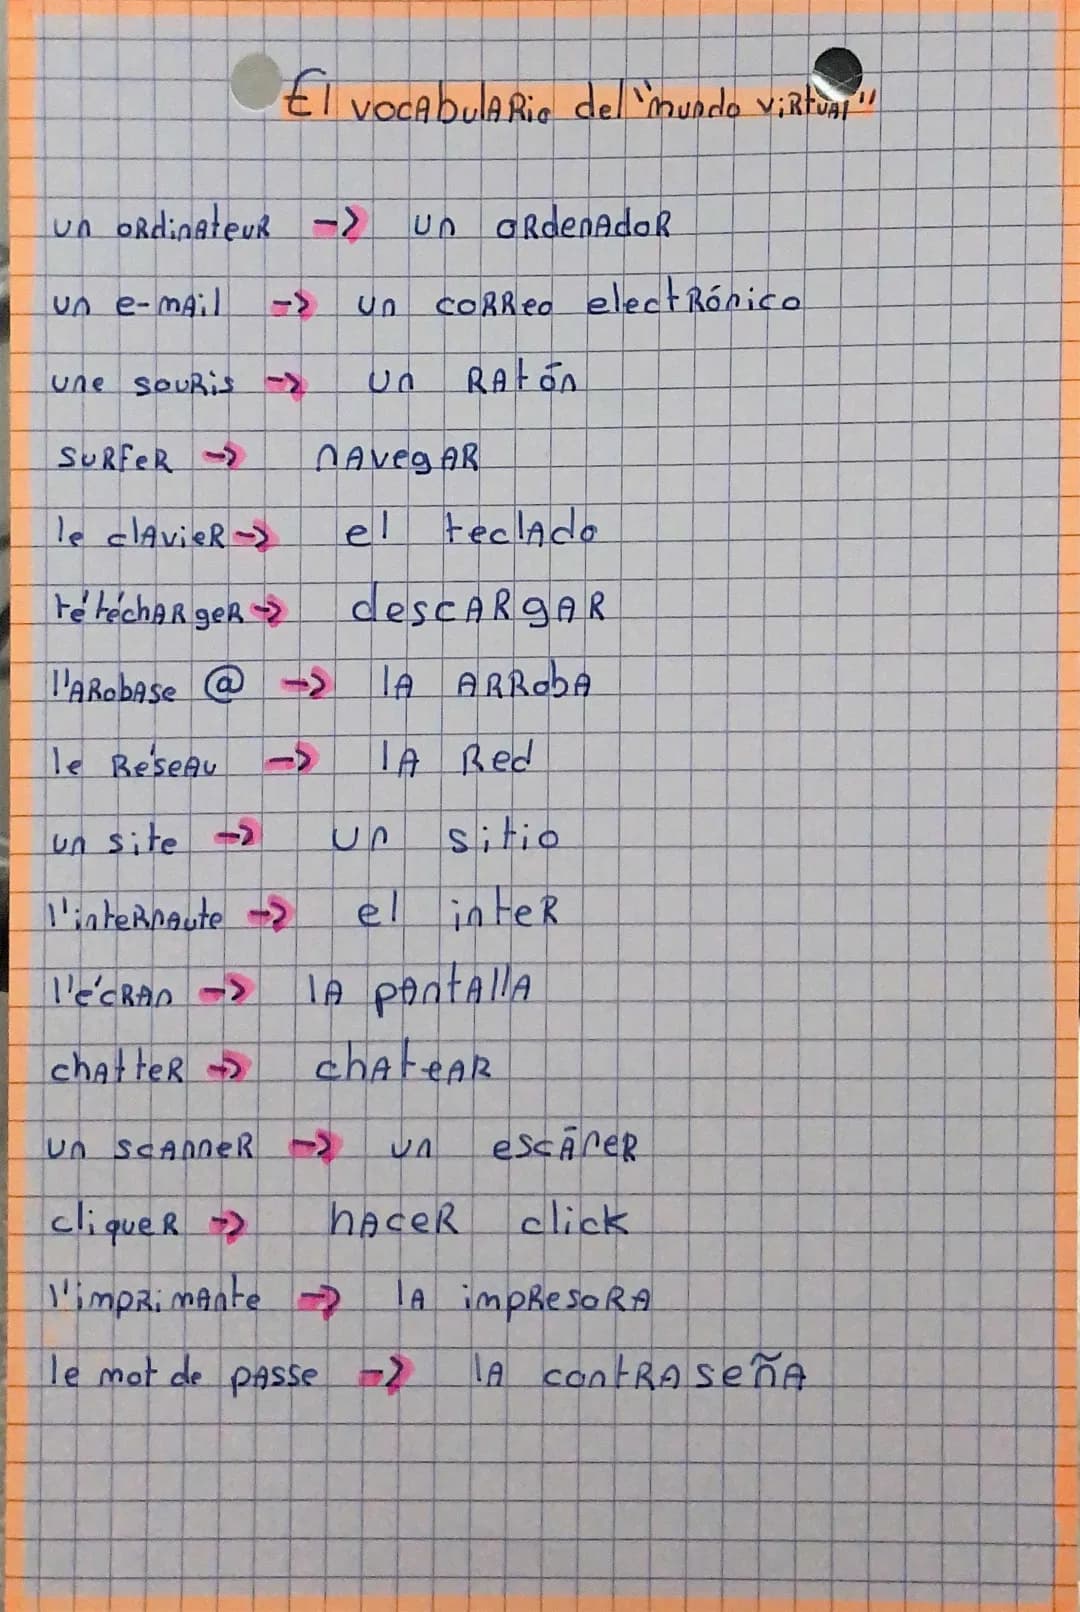 El vocabulario del "mundo virtual"
un ordinateur -> un ordenador
un e-mail -> un correo electrónico
une souris -> un ratón
surfer -> navegar
le clavier -> el teclado
télécharger -> descargar
l'arobase @ -> la arroba
le réseau -> la red
un site -> un sitio
l'internaute -> el inter
l'écran -> la pantalla
chatter -> chatear
un scanner -> un escáner
cliquer -> hacer click
l'imprimante -> la impresora
le mot de passe -> la contraseña